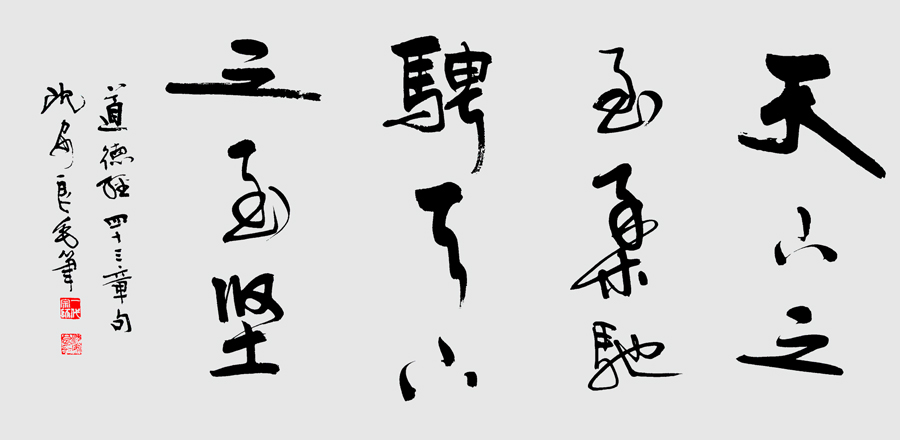 天下之
至柔馳
騁天下
之至堅
道德經四十三章句
沈安良毛筆